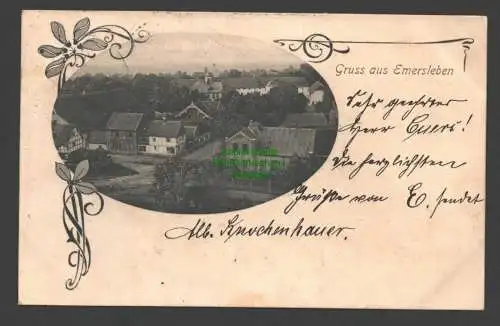 Gruss aus Emersleben
Sehr geehrter
Herr Cuers!
Die herzlichsten
Grüße von E. sendet
Alb. Knochenhauer.